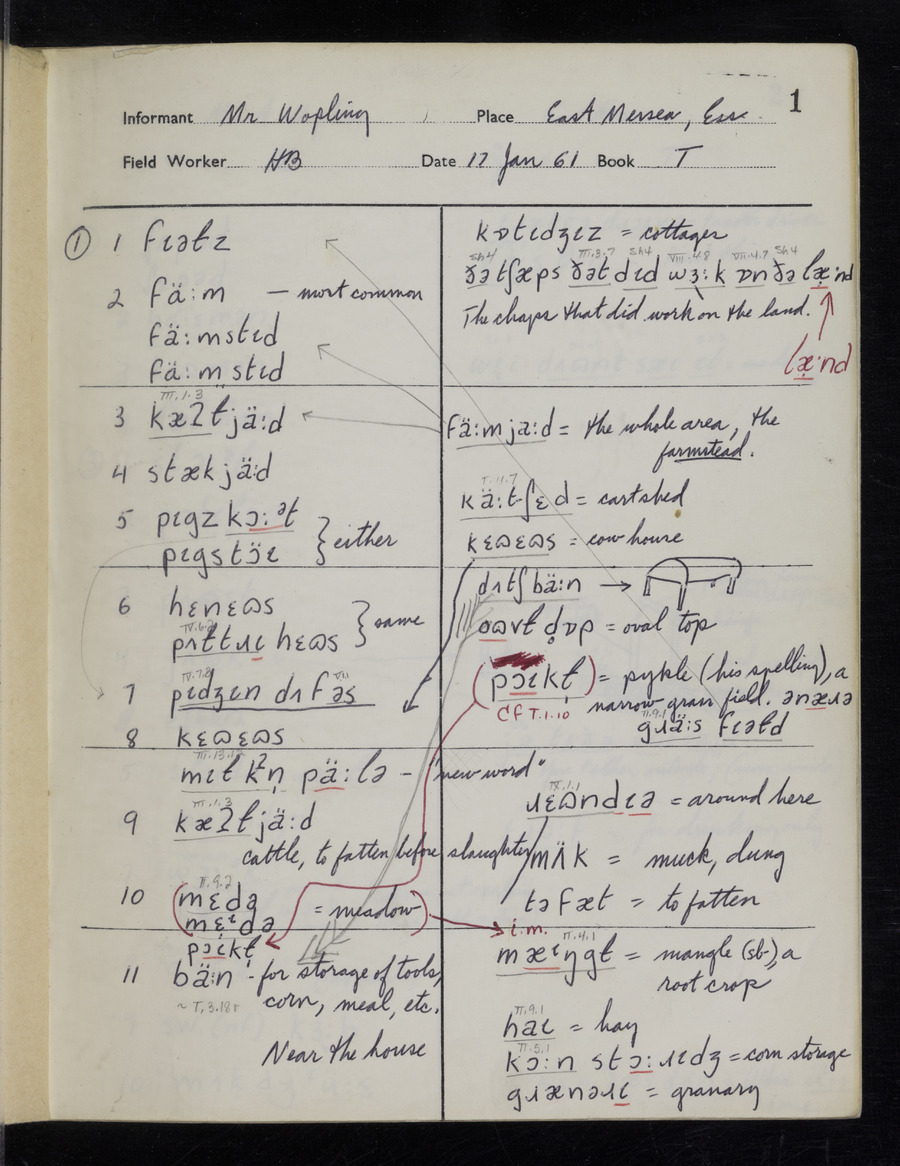 1
Informant Mr Wopling Place East Mersea, Ess.
Field Worker HB Date 17 Jan 61 Book T
① 1 fɪəɫz
2 fä:m — most common
fä:mstɪd
fä:m stɪd
III.1.3
3 kæʔɫjä:d
4 stækjä:d
5 pɪgz kɔ:ət
pɪgstɔ̈ɪ } either
6 hɛnɛɷs
IV.6.2
pɹɪtɫɹɪ hɛɷs } same
IV.7.8 V.1.1
7 pɪdʒɪn dʌfəs
8 kɛɷɛɷs
III.13.12
mɪɫkʔn̩ pä:lə – "new word"
III.1.3
9 kæʔɫjä:d
cattle, to fatten before slaughter
II.9.2
10 (mɛdə
mɛɪdə = meadow)
pɔɪkɫ̩
11 bä:n - for storage of tools,
~ T,3.18r corn, meal, etc.
Near the house
kɒtɪdʒɪz = cottages
Sh4 III.3.7 Sh4 VIII.4.8 VII.4.7 Sh4
ðə tʃæps ðət dɪd wɜ:k ɒn ðə læ:nd
The chaps that did work on the land.
læ:nd
fä:mja:d = the whole area, the
farmstead.
T.11.7
kä:tʃɛd = cartshed
kɛɷɛɷs = cow house
dʌtʃ bä:n →
oɷvɫ dɒp = oval top
(pɔɪkɫ̩) = pykle (his spelling), a
Cf T.1.10 narrow grass field. ənæɹə
II.9.1
gɹä:s fɪəɫd
IX.1.1
ɹɛɷndɪə = around here
mʌ̈k = muck, dung
təfæt = to fatten
i.m.
II.4.1
mæɪŋgɫ = mangle (sb.), a
root crop
II.9.1
haɪ = hay
II.5.1
kɔ:n stɔ:ɹɪdʒ = corn storage
gɹænəɹɪ = granary